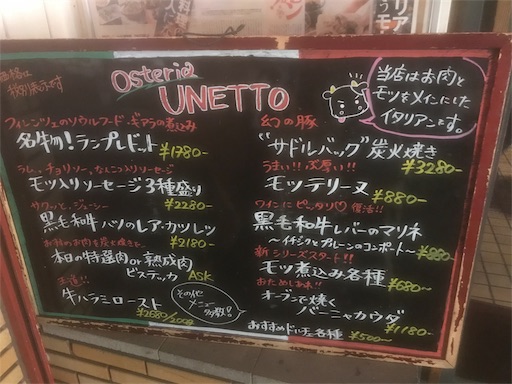 Osteria
UNETTO
当店はお肉と
モツをメインにした
イタリアンです。
フィレンツェのソウルフード・ギアラの煮込み
名物!ランプレドット
¥1780-
チョリソー、なんこつ入りソーセージ
モツ入りソーセージ3種盛り
¥2280-
サクッと、ジューシー
黒毛和牛ハツのレア・カツレツ
¥2180-
本日の特選肉or熟成肉
ビステッカ ASK
王道!!
牛ハラミロースト
¥2680/200g
その他
メニュー
多数!!
幻の豚
"サドルバッグ"炭火焼き
¥3280-
うまい!!ぶ厚い!!
モツテリーヌ
¥880-
ワインにピッタリ♡復活!!
黒毛和牛レバーのマリネ
〜イチジクとプルーンのコンポート〜 ¥880-
新シリーズスタート!!
モツ煮込み各種
¥680〜
おためしあれ!!
オーブンで焼く
バーニャカウダ
¥1180-
おすすめドルチェ各種 ¥500〜